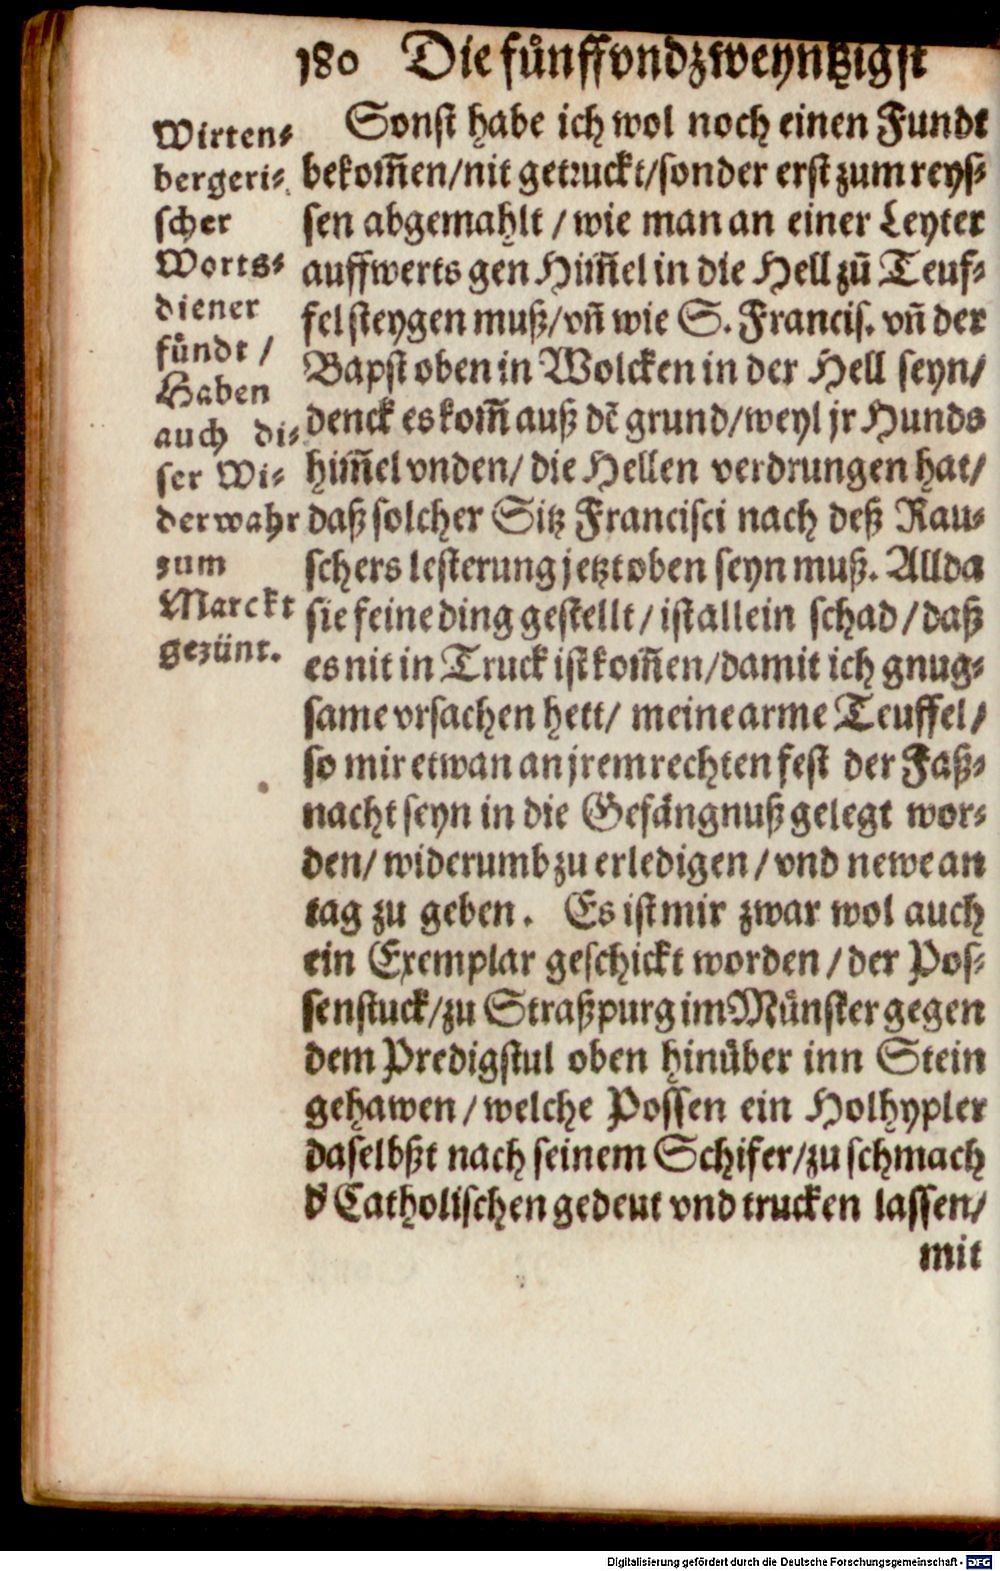 180 Die fuͤnffvndzweyntzigst
Wirten⸗
bergeri⸗
scher
Worts⸗
diener
fuͤndt /
Haben
auch di⸗
ser Wi⸗
derwahr
zum
Marckt
gezünt.
Sonst habe ich wol noch einen Fundt
bekom̃en/nit getruckt/sonder erst zum reys⸗
sen abgemahlt / wie man an einer Leyter
auffwerts gen Him̃el in die Hell zũ Teuf⸗
fel steygen muß/vñ wie S. Francis. vñ der
Bapst oben in Wolcken in der Hell seyn/
denck es kom̃ auß dẽ grund/weyl jr Hunds
him̃el vnden/ die Hellen verdrungen hat/
daß solcher Sitz Francisci nach deß Rau⸗
schers lesterung jetzt oben seyn muß. Allda
sie feine ding gestellt/ ist allein schad/ daß
es nit in Truck ist kom̃en/damit ich gnug⸗
same vrsachen hett/ meine arme Teuffel/
so mir etwan an jrem rechten fest der Faß⸗
nacht seyn in die Gefaͤngnuß gelegt wor⸗
den/ widerumb zu erledigen/ vnd newe an
tag zu geben. Es ist mir zwar wol auch
ein Exemplar geschickt worden/ der Pos⸗
senstuck/zu Straßpurg im Muͤnster gegen
dem Predigstul oben hinuͤber inn Stein
gehawen/ welche Possen ein Holhypler
daselbßt nach seinem Schifer/zu schmach
d' Catholischen gedeut vnd trucken lassen/
mit
Digitalisierung gefördert durch die Deutsche Forschungsgemeinschaft - DFG